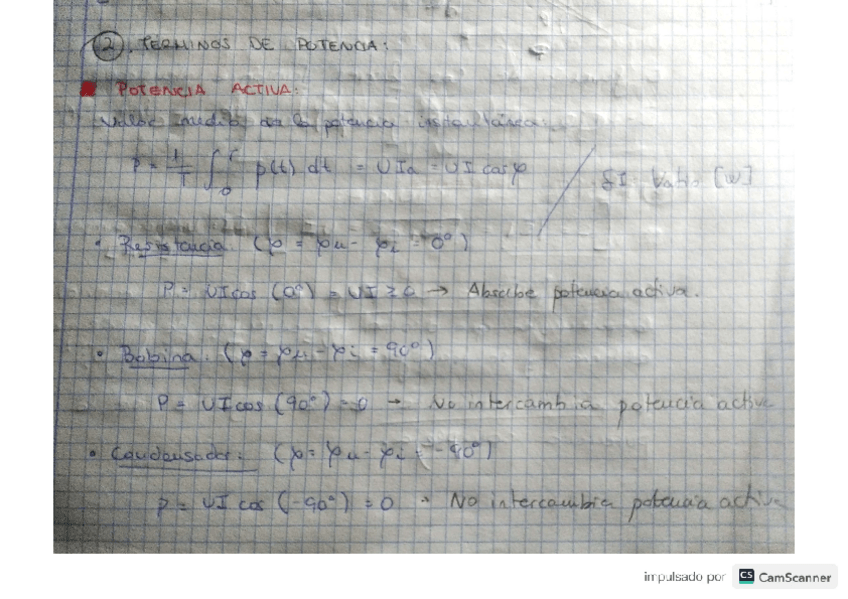 2. TÉRMINOS DE POTENCIA:
POTENCIA ACTIVA:
Valor medio de la potencia instantánea:
P = 1/T ∫₀ᵀ p(t) dt = UIa = UI cos φ / SI Vatio [W]
• Resistencia: (φ = φu - φi = 0°)
P = UI cos (0°) = UI ≥ 0 → Absorbe potencia activa.
• Bobina: (φ = φu - φi = 90°)
P = UI cos (90°) = 0 → No intercambia potencia activa
• Condensador: (φ = φu - φi = -90°)
P = UI cos (-90°) = 0 → No intercambia potencia activa
impulsado por CS CamScanner